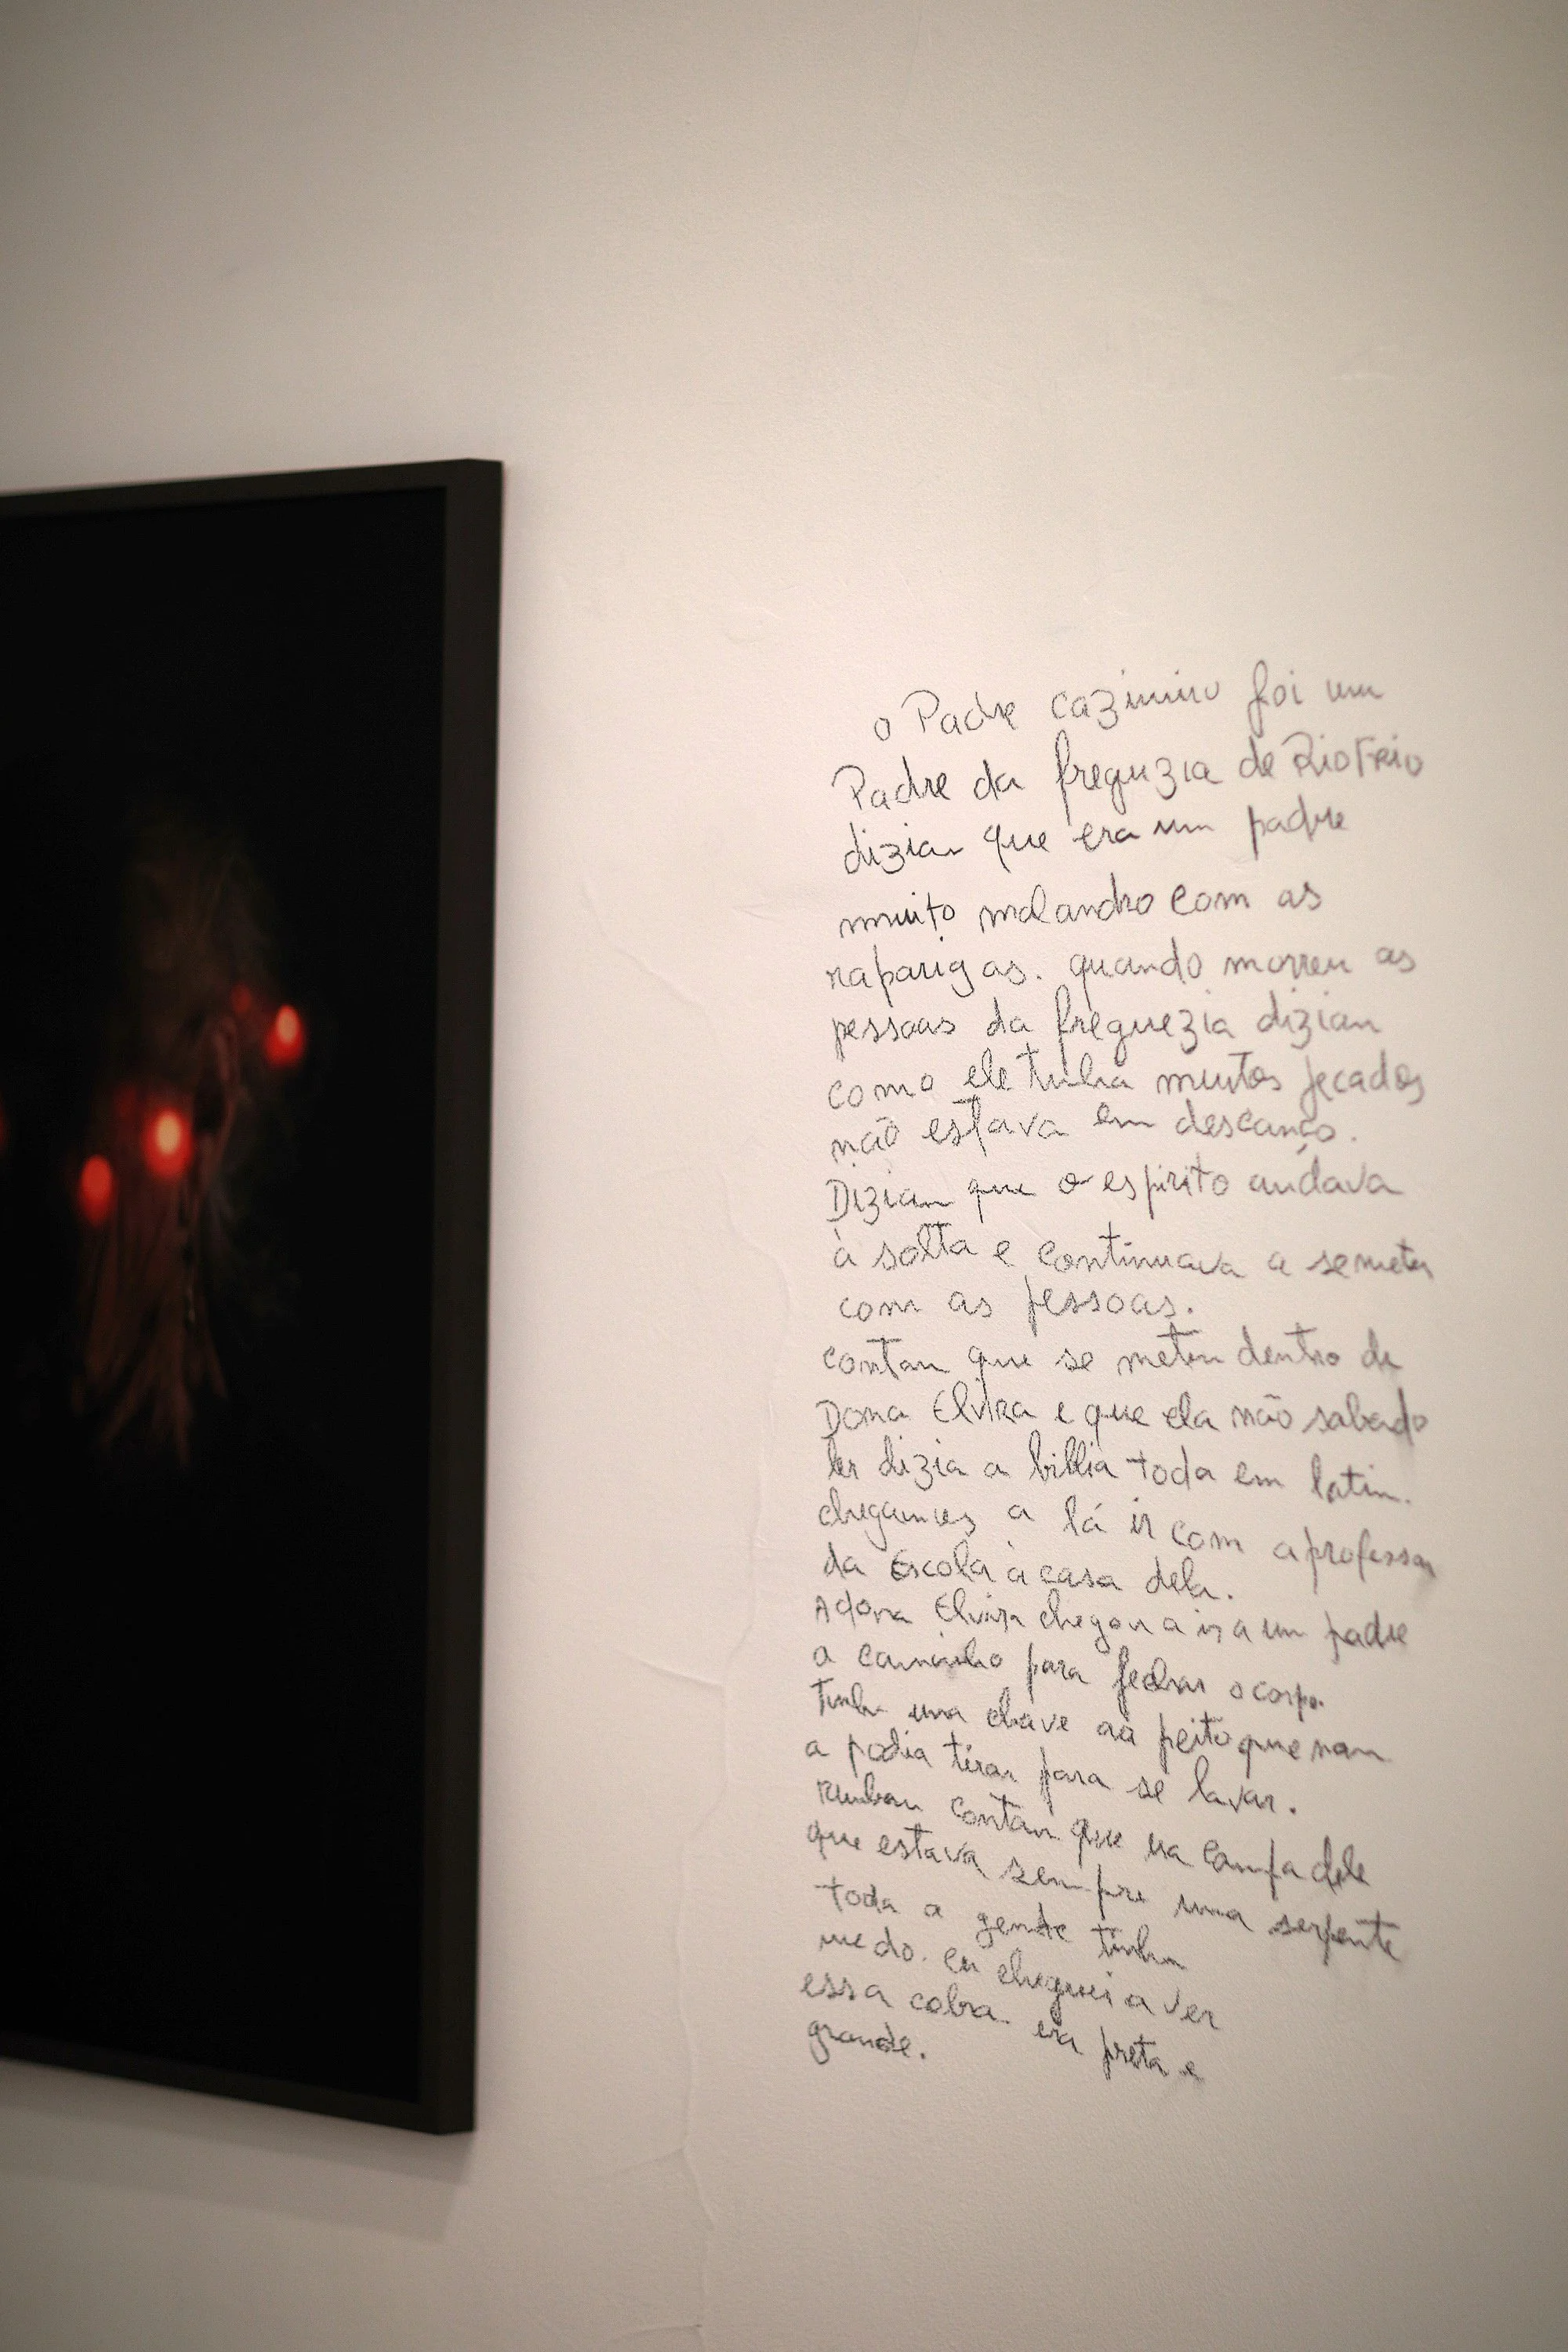 o Padre cazimiro foi um
Padre da freguzia de Rio Frio
dizian que era um padre
muito malandro com as
raparigas. quando morreu as
pessoas da freguezia dizian
como ele tinha muitos pecados
não estava em descanço.
Dizian que o espirito andava
à solta e continuava a semeter
com as pessoas.
contan que se meteu dentro de
Dona Elvira e que ela não sabendo
ler dizia a biblia toda em latin.
chegamos a lá ir com a professora
da Escola à casa dela.
A dona Elvira chegou a ir a um padre
a caminho para fechar o corpo.
tinha uma chave ao peito que nam
a podia tirar para se lavar.
contan que na campa dele
que estava sempre uma serpente
toda a gente tinha
medo. eu cheguei a ver
essa cobra. era preta e
grande.